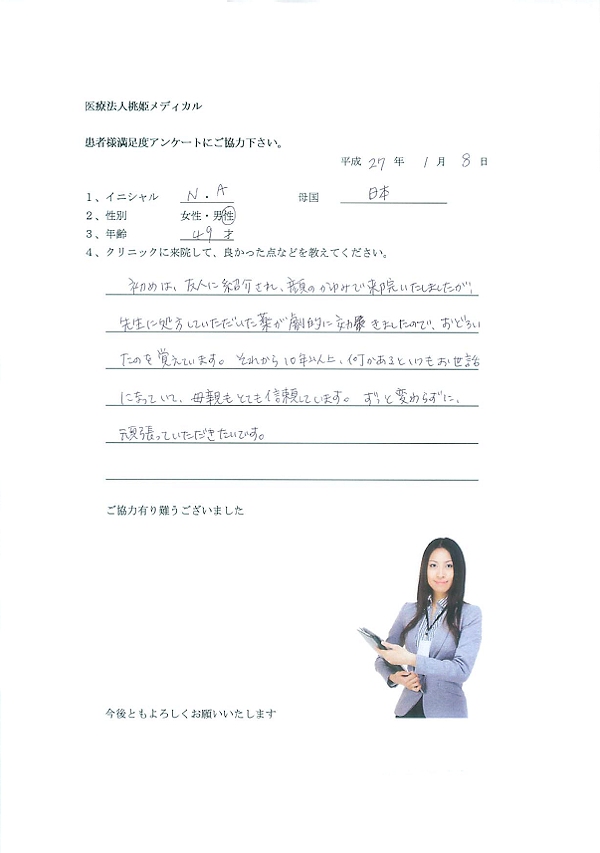 医療法人桃姫メディカル
患者様満足度アンケートにご協力下さい。
平成 27 年 1 月 8 日
1、イニシャル N.A 母国 日本
2、性別 女性・男性
3、年齢 49才
4、クリニックに来院して、良かった点などを教えてください。
初めは、友人に紹介され、顔のかゆみで来院いたしましたが、
先生に処方していただいた薬が劇的に効きましたので、おどろい
たのを覚えています。それから10年以上、何かあるといつもお世話
になっていて、母親もとても信頼しています。ずっと変わらずに、
頑張っていただきたいです。
ご協力有り難うございました
今後ともよろしくお願いいたします